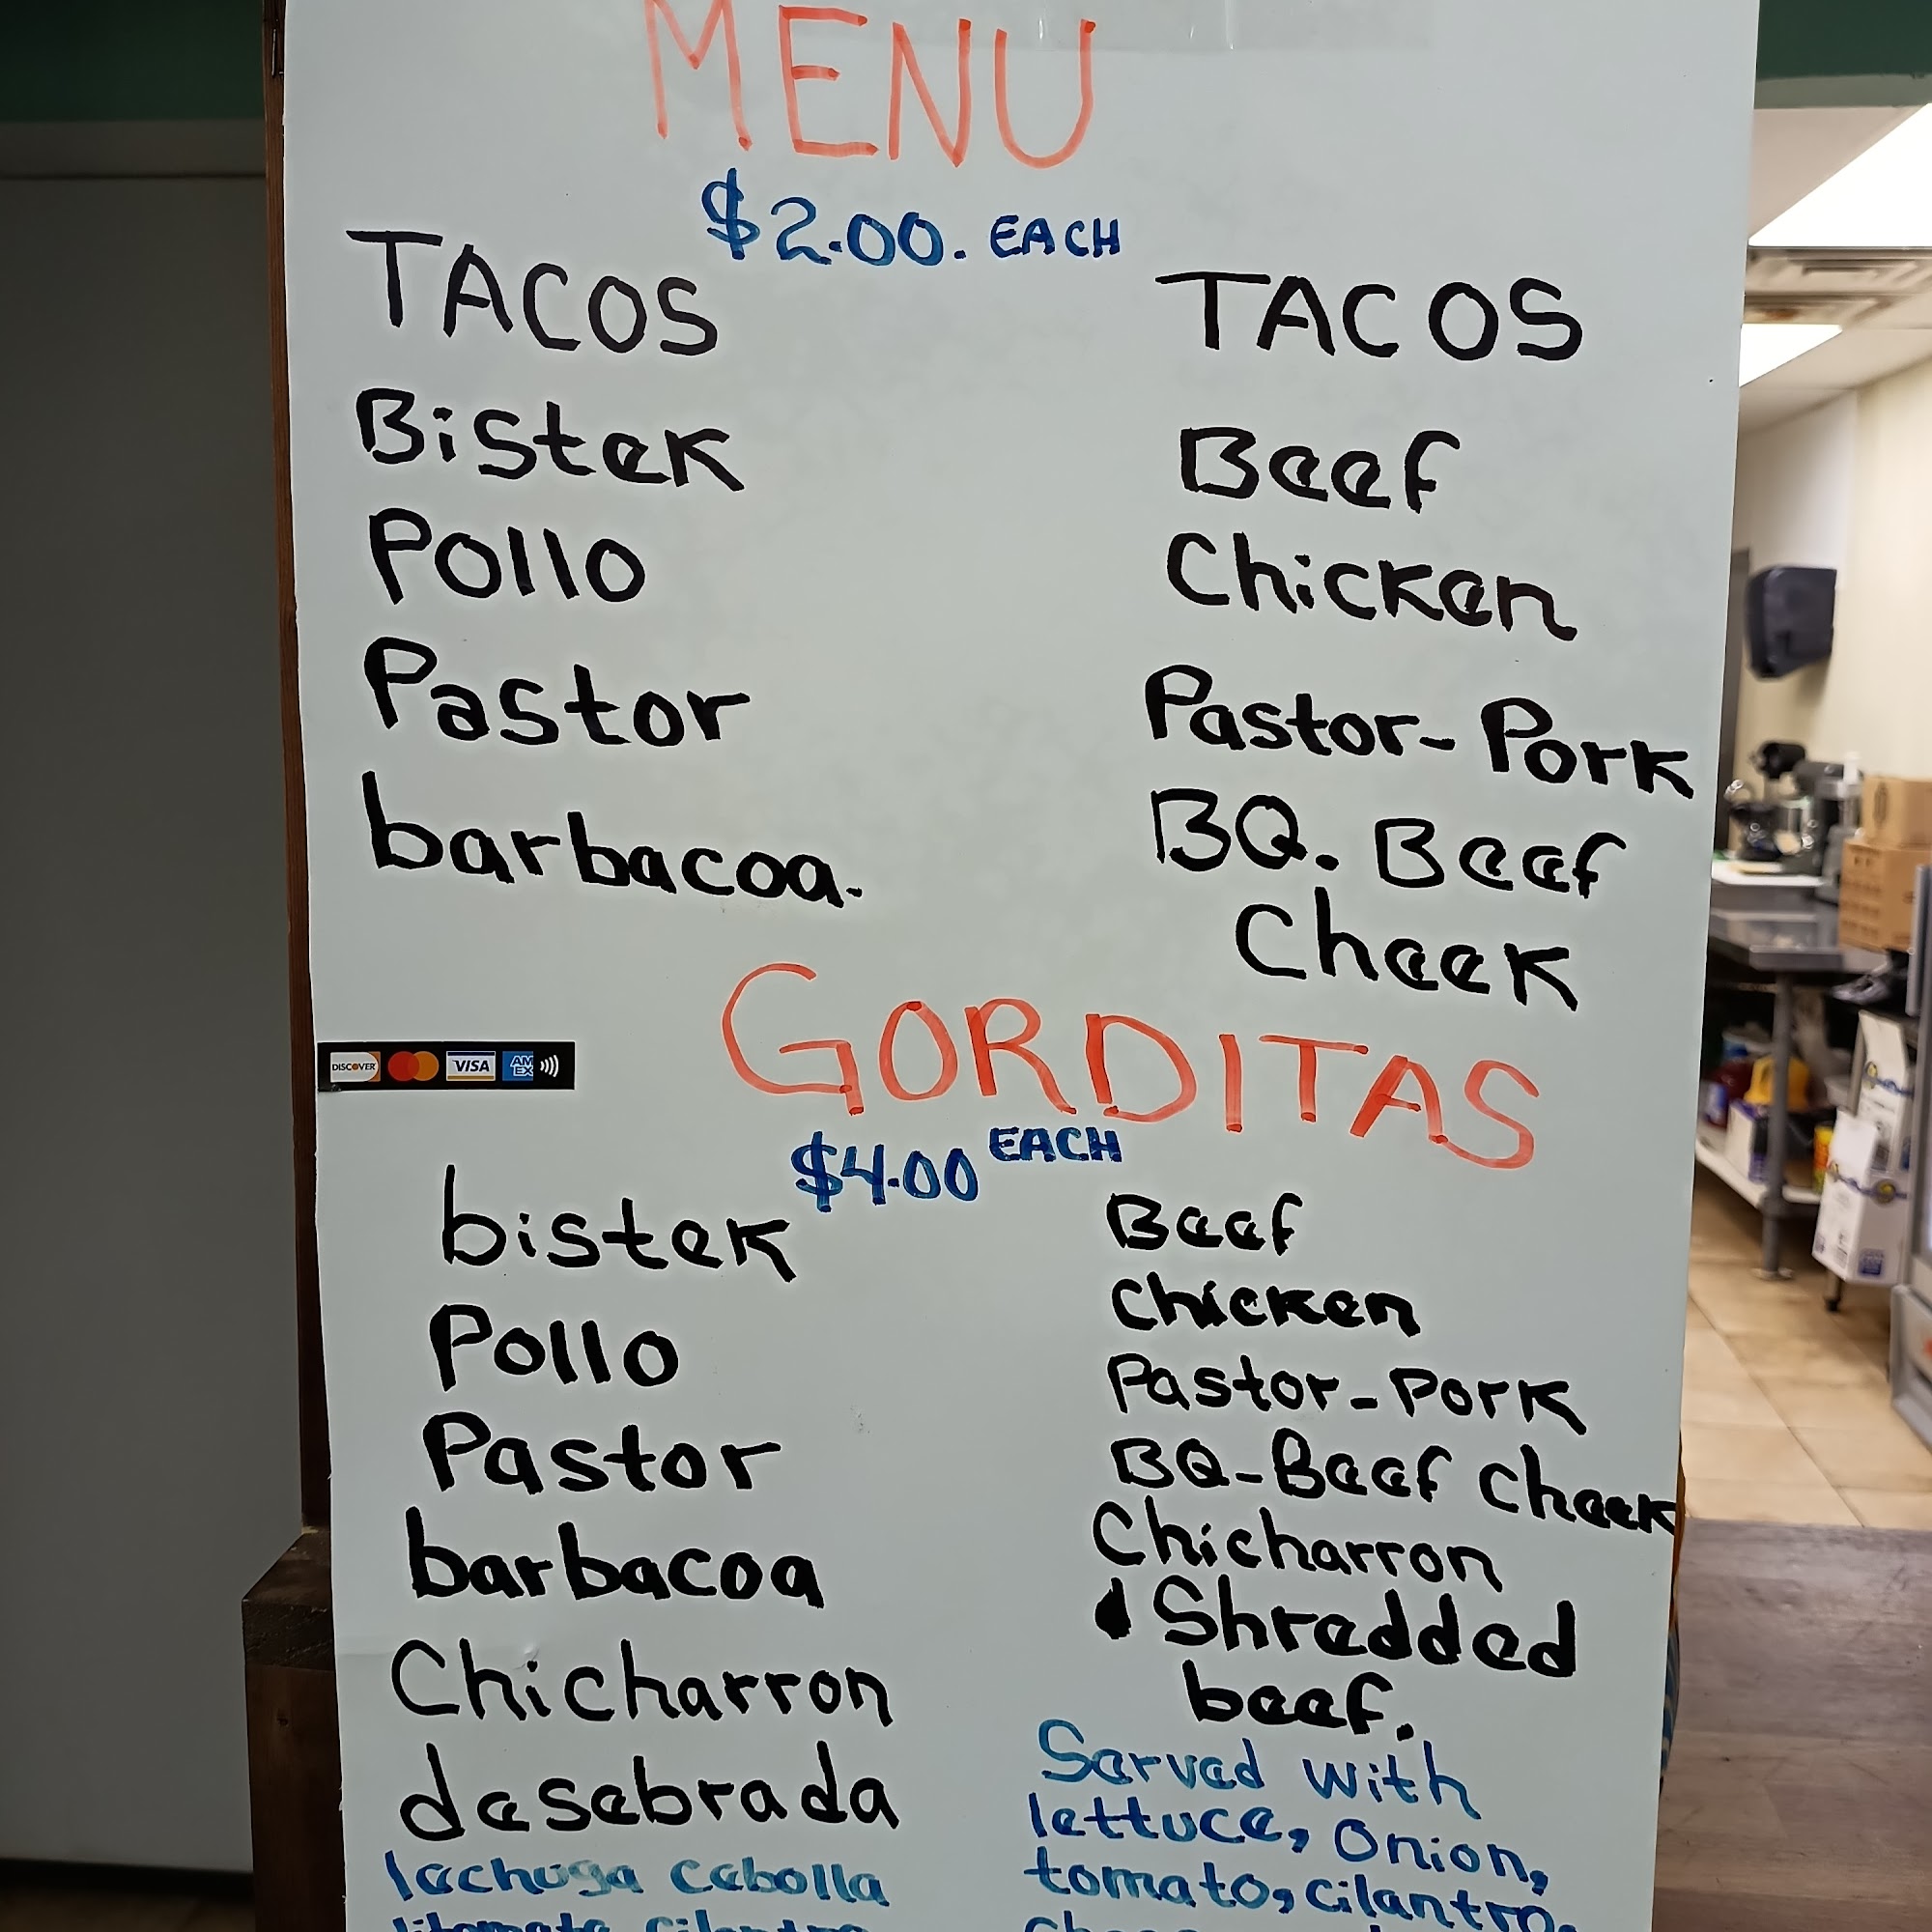 MENU
$2.00. EACH
TACOS
Bistek
Pollo
Pastor
barbacoa.
TACOS
Beef
Chicken
Pastor-Pork
BQ. Beef
Cheek
DISCOVER VISA AM EX
GORDITAS
$4.00 EACH
bistek
Pollo
Pastor
barbacoa
Chicharron
desebrada
lechuga cebolla
Beef
Chicken
Pastor-Pork
BQ-Beef Cheek
Chicharron
Shredded
beef.
Served with
lettuce, onion,
tomato, cilantro.